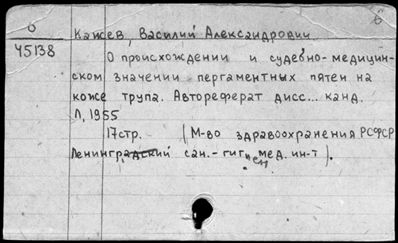 б
б
Кажев, Василий Александрович.
45138
О происхождении и судебно-медицин-
ском значении пергаментных пятен на
коже трупа. Автореферат дисс... канд.
Л, 1955
17стр. (М-во здравоохранения РСФСР
Ленинградский сан.-гигиен мед. ин-т).